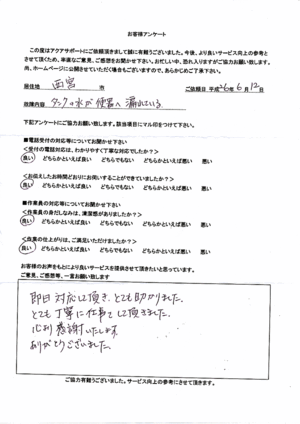 お客様アンケート
この度はアクアサポートにご依頼頂きまして誠に有難うございました。今後、より良いサービス向上の参考と
させて頂くため、率直なご意見、ご感想をお聞かせ下さい。お忙しい中、恐れ入りますがご協力お願い致します。
尚、ホームページに公開させていただく場合もございますので、あらかじめご了承下さい。
居住地 西宮 市 ご依頼日 平成26年6月12日
故障内容 タンクの水が便器へ漏れている
下記アンケートにご協力お願い致します。該当項目にマル印をつけて下さい。
■電話受付の対応等についてお聞かせ下さい
<受付の電話対応は、わかりやすく丁寧な対応でしたか?>
良い どちらかといえば良い どちらでもない どちらかといえば悪い 悪い
<お伝えしたお時間どおりにお伺いすることができていましたか?>
良い どちらかといえば良い どちらでもない どちらかといえば悪い 悪い
■作業員の対応等についてお聞かせ下さい
<作業員の身だしなみは、清潔感がありましたか?>
良い どちらかといえば良い どちらでもない どちらかといえば悪い 悪い
<作業員の仕上がりは、ご満足いただけましたか?>
良い どちらかといえば良い どちらでもない どちらかといえば悪い 悪い
お客様のお声をもとにより良いサービスを提供させて頂きたいと思っています。
ご意見、ご感想等、一言お願い致します
即日対応して頂き、とても助かりました。
とても丁寧に仕事して頂きました。
心より感謝いたします
ありがとうございました。
ご協力有難うございました。サービス向上の参考にさせて頂きます。